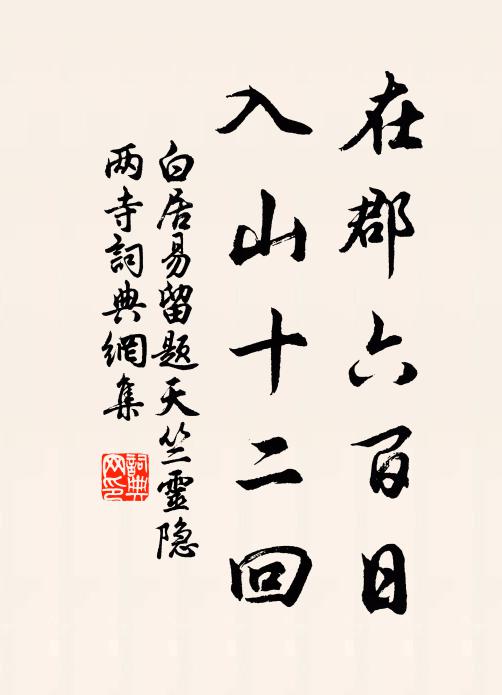 在郡六百日
入山十二回
白居易留题天竺靈隐
两寺詞典網集
詞典
网印